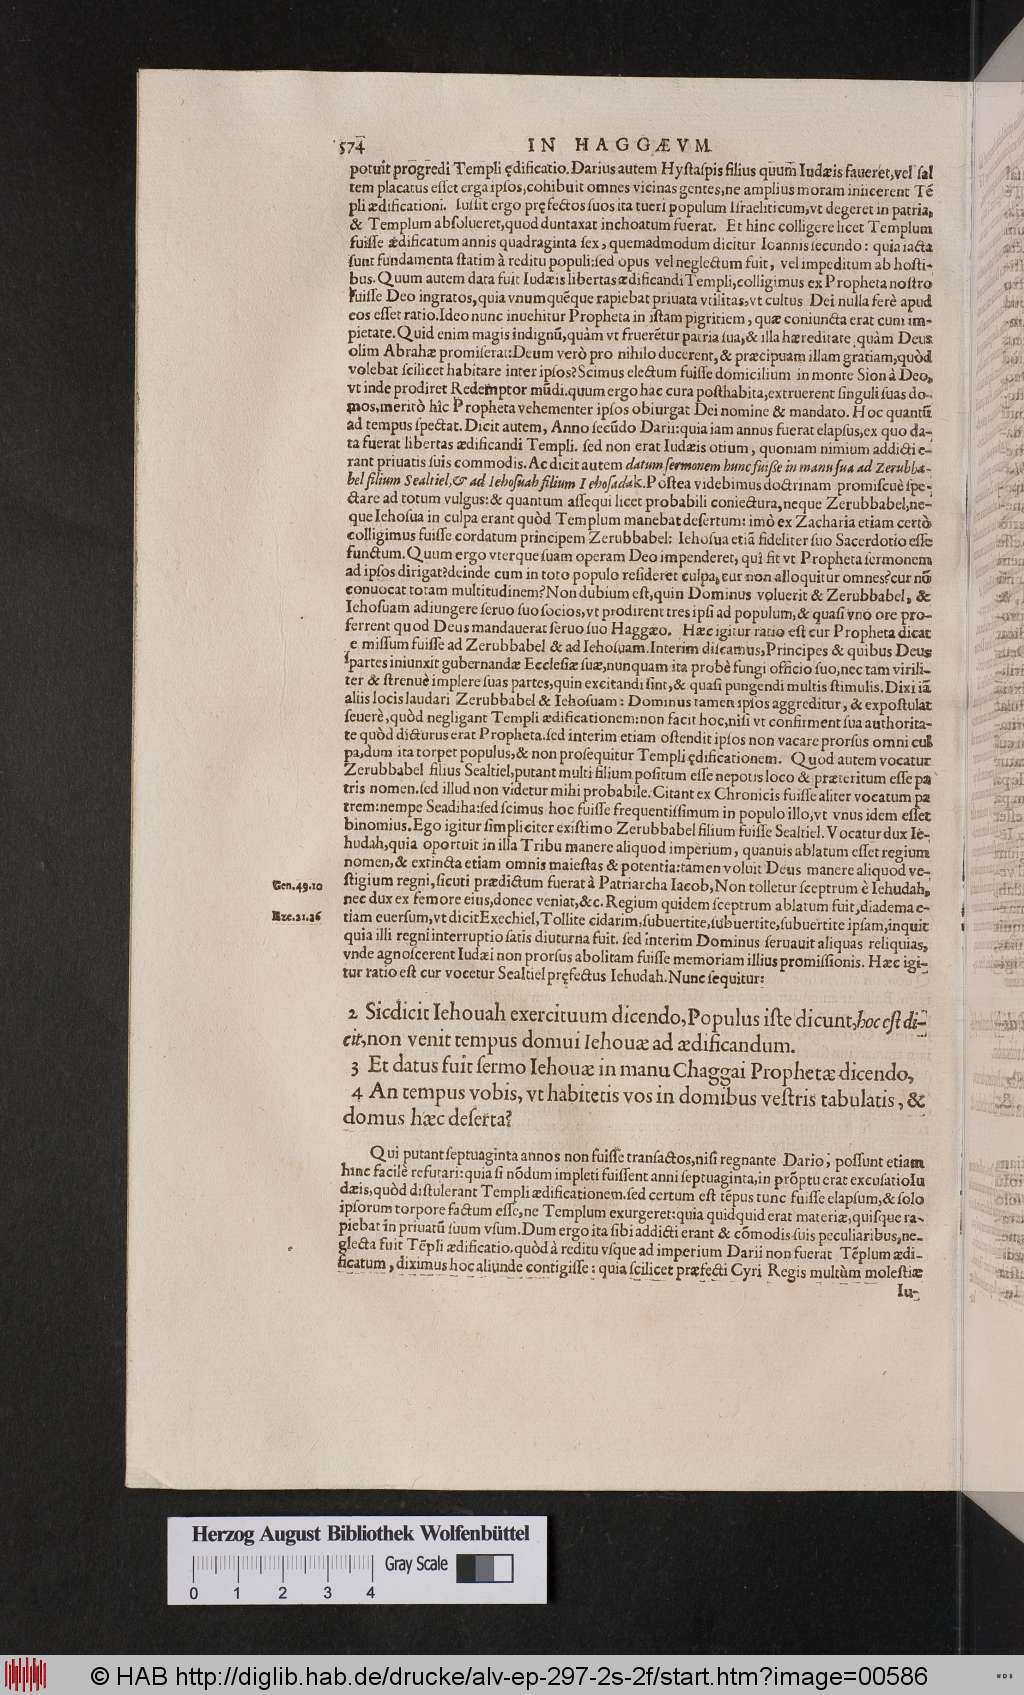 574 IN HAGGÆVM.
potuit prōgredi Templi ędificatio. Darius autem Hyſtaſpis filius quum Iudæis faueret, vel ſal
tem placatus eſſet erga ipſos, cohibuit omnes vicinas gentes, ne amplius moram iniicerent Tē
pli ædificationi. Iuſſit ergo pręfectos ſuos ita tueri populum Iſraeliticum, vt degeret in patria,
& Templum abſolueret, quod duntaxat inchoatum fuerat. Et hinc colligere licet Templum
fuiſſe ædificatum annis quadraginta ſex, quemadmodum dicitur Ioannis ſecundo: quia iacta
ſunt fundamenta ſtatim à reditu populi: ſed opus vel neglectum fuit, vel impeditum ab hoſti-
bus. Quum autem data fuit Iudæis libertas ædificandi Templi, colligimus ex Propheta noſtro
fuiſſe Deo ingratos, quia vnumquēque rapiebat priuata vtilitas, vt cultus Dei nulla ferè apud
eos eſſet ratio. Ideo nunc inuehitur Propheta in iſtam pigritiem, quæ coniuncta erat cum im-
pietate. Quid enim magis indignū, quàm vt fruerētur patria ſua, & illa hæreditate quàm Deus
olim Abrahæ promiſerat: Deum verò pro nihilo ducerent, & præcipuam illam gratiam, quòd
volebat ſcilicet habitare inter ipſos? Scimus electum fuiſſe domicilium in monte Sion à Deo,
vt inde prodiret Redemptor mūdi. quum ergo hac cura poſthabita, extruerent ſinguli ſuas do-
mos, meritò hîc Propheta vehementer ipſos obiurgat Dei nomine & mandato. Hoc quantū
ad tempus ſpectat. Dicit autem, Anno ſecūdo Darii: quia iam annus fuerat elapſus, ex quo da-
ta fuerat libertas ædificandi Templi. ſed non erat Iudæis otium, quoniam nimium addicti e-
rant priuatis ſuis commodis. Ac dicit autem datum ſermonem hunc fuiſſe in manu ſua ad Zerubba-
bel filium Sealtiel, & ad Iehoſuah filium Iehoſadak. Poſtea videbimus doctrinam promiſcuè ſpe-
ctare ad totum vulgus: & quantum aſſequi licet probabili coniectura, neque Zerubbabel, ne-
que Iehoſua in culpa erant quòd Templum manebat deſertum: imò ex Zacharia etiam certò
colligimus fuiſſe cordatum principem Zerubbabel: Iehoſua etiā fideliter ſuo Sacerdotio eſſe
functum. Quum ergo vterque ſuam operam Deo impenderet, quî fit vt Propheta ſermonem
ad ipſos dirigat? deinde cum in toto populo reſideret culpa, cur non alloquitur omnes? cur nō
conuocat totam multitudinem? Non dubium eſt, quin Dominus voluerit & Zerubbabel, &
Iehoſuam adiungere ſeruo ſuo ſocios, vt prodirent tres ipſi ad populum, & quaſi vno ore pro-
ferrent quod Deus mandauerat ſeruo ſuo Haggæo. Hæc igitur ratio eſt cur Propheta dicat
ſe miſſum fuiſſe ad Zerubbabel & ad Iehoſuam. Interim diſcamus, Principes & quibus Deus
partes iniunxit gubernandæ Eccleſiæ ſuæ, nunquam ita probè fungi officio ſuo, nec tam virili-
ter & ſtrenuè implere ſuas partes, quin excitandi ſint, & quaſi pungendi multis ſtimulis. Dixi iā
aliis locis laudari Zerubbabel & Iehoſuam: Dominus tamen ipſos aggreditur, & expoſtulat
ſeuerè, quòd negligant Templi ædificationem: non facit hoc, niſi vt confirment ſua authorita-
te quòd dicturus erat Propheta. ſed interim etiam oſtendit ipſos non vacare prorſus omni cul
pa, dum ita torpet populus, & non proſequitur Templi ędificationem. Quod autem vocatur
Zerubbabel filius Sealtiel, putant multi filium poſitum eſſe nepotis loco & præteritum eſſe pa
tris nomen. ſed illud non videtur mihi probabile. Citant ex Chronicis fuiſſe aliter vocatum pa
trem: nempe Seadiha: ſed ſcimus hoc fuiſſe frequentiſſimum in populo illo, vt vnus idem eſſet
binomius. Ego igitur ſimpliciter exiſtimo Zerubbabel filium fuiſſe Sealtiel. Vocatur dux Ie-
hudah, quia oportuit in illa Tribu manere aliquod imperium, quanuis ablatum eſſet regium
nomen, & extincta etiam omnis maieſtas & potentia: tamen voluit Deus manere aliquod ve-
Gen. 49.10 ſtigium regni, ſicuti prædictum fuerat à Patriarcha Iacob, Non tolletur ſceptrum è Iehudah,
nec dux ex femore eius, donec veniat, &c. Regium quidem ſceptrum ablatum fuit, diadema e-
Eze. 21.26 tiam euerſum, vt dicit Exechiel, Tollite cidarim, ſubuertite, ſubuertite, ſubuertite ipſam, inquit
quia illi regni interruptio ſatis diuturna fuit. ſed interim Dominus ſeruauit aliquas reliquias,
vnde agnoſcerent Iudæi non prorſus abolitam fuiſſe memoriam illius promiſſionis. Hæc igi-
tur ratio eſt cur vocetur Sealtiel pręfectus Iehudah. Nunc ſequitur:
2 Sic dicit Iehouah exercituum dicendo, Populus iſte dicunt, hoc eſt di-
cit, non venit tempus domui Iehouæ ad ædificandum.
3 Et datus fuit ſermo Iehouæ in manu Chaggai Prophetæ dicendo,
4 An tempus vobis, vt habitetis vos in domibus veſtris tabulatis, &
domus hæc deſerta?
Qui putant ſeptuaginta annos non fuiſſe tranſactos, niſi regnante Dario, poſſunt etiam
hinc facilè refutari: quia ſi nōdum impleti fuiſſent anni ſeptuaginta, in prōptu erat excuſatio Iu
dæis, quòd diſtulerant Templi ædificationem. ſed certum eſt tēpus tunc fuiſſe elapſum, & ſolo
ipſorum torpore factum eſſe, ne Templum exurgeret: quia quidquid erat materiæ, quiſque ra-
piebat in priuatū ſuum vſum. Dum ergo ita ſibi addicti erant & cōmodis ſuis peculiaribus, ne-
glecta fuit Tēpli ædificatio. quòd à reditu vſque ad imperium Darii non fuerat Tēplum ædi-
ficatum, diximus hoc aliunde contigiſſe: quia ſcilicet præfecti Cyri Regis multùm moleſtiæ
Iu-
Herzog August Bibliothek Wolfenbüttel
Gray Scale
0 1 2 3 4
© HAB http://diglib.hab.de/drucke/alv-ep-297-2s-2f/start.htm?image=00586